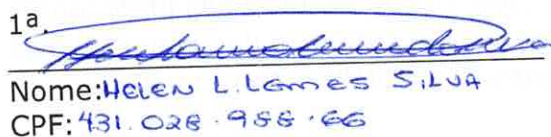 1ª.
Nome: HELEN L. LEMES SILVA
CPF: 431.028.988.66